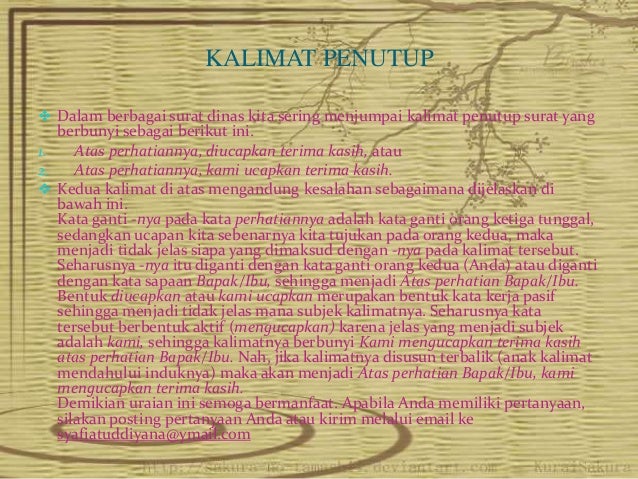 KALIMAT PENUTUP
Dalam berbagai surat dinas kita sering menjumpai kalimat penutup surat yang
berbunyi sebagai berikut ini.
1. Atas perhatiannya, diucapkan terima kasih, atau
2. Atas perhatiannya, kami ucapkan terima kasih.
Kedua kalimat di atas mengandung kesalahan sebagaimana dijelaskan di
bawah ini.
Kata ganti -nya pada kata perhatiannya adalah kata ganti orang ketiga tunggal,
sedangkan ucapan kita sebenarnya kita tujukan pada orang kedua, maka
menjadi tidak jelas siapa yang dimaksud dengan -nya pada kalimat tersebut.
Seharusnya -nya itu diganti dengan kata ganti orang kedua (Anda) atau diganti
dengan kata sapaan Bapak/Ibu, sehingga menjadi Atas perhatian Bapak/Ibu.
Bentuk diucapkan atau kami ucapkan merupakan bentuk kata kerja pasif
sehingga menjadi tidak jelas mana subjek kalimatnya. Seharusnya kata
tersebut berbentuk aktif (mengucapkan) karena jelas yang menjadi subjek
adalah kami, sehingga kalimatnya berbunyi Kami mengucapkan terima kasih
atas perhatian Bapak/Ibu. Nah, jika kalimatnya disusun terbalik (anak kalimat
mendahului induknya) maka akan menjadi Atas perhatian Bapak/Ibu, kami
mengucapkan terima kasih.
Demikian uraian ini semoga bermanfaat. Apabila Anda memiliki pertanyaan,
silakan posting pertanyaan Anda atau kirim melalui email ke
syafiatuddiyana@ymail.com
KuraiSakura